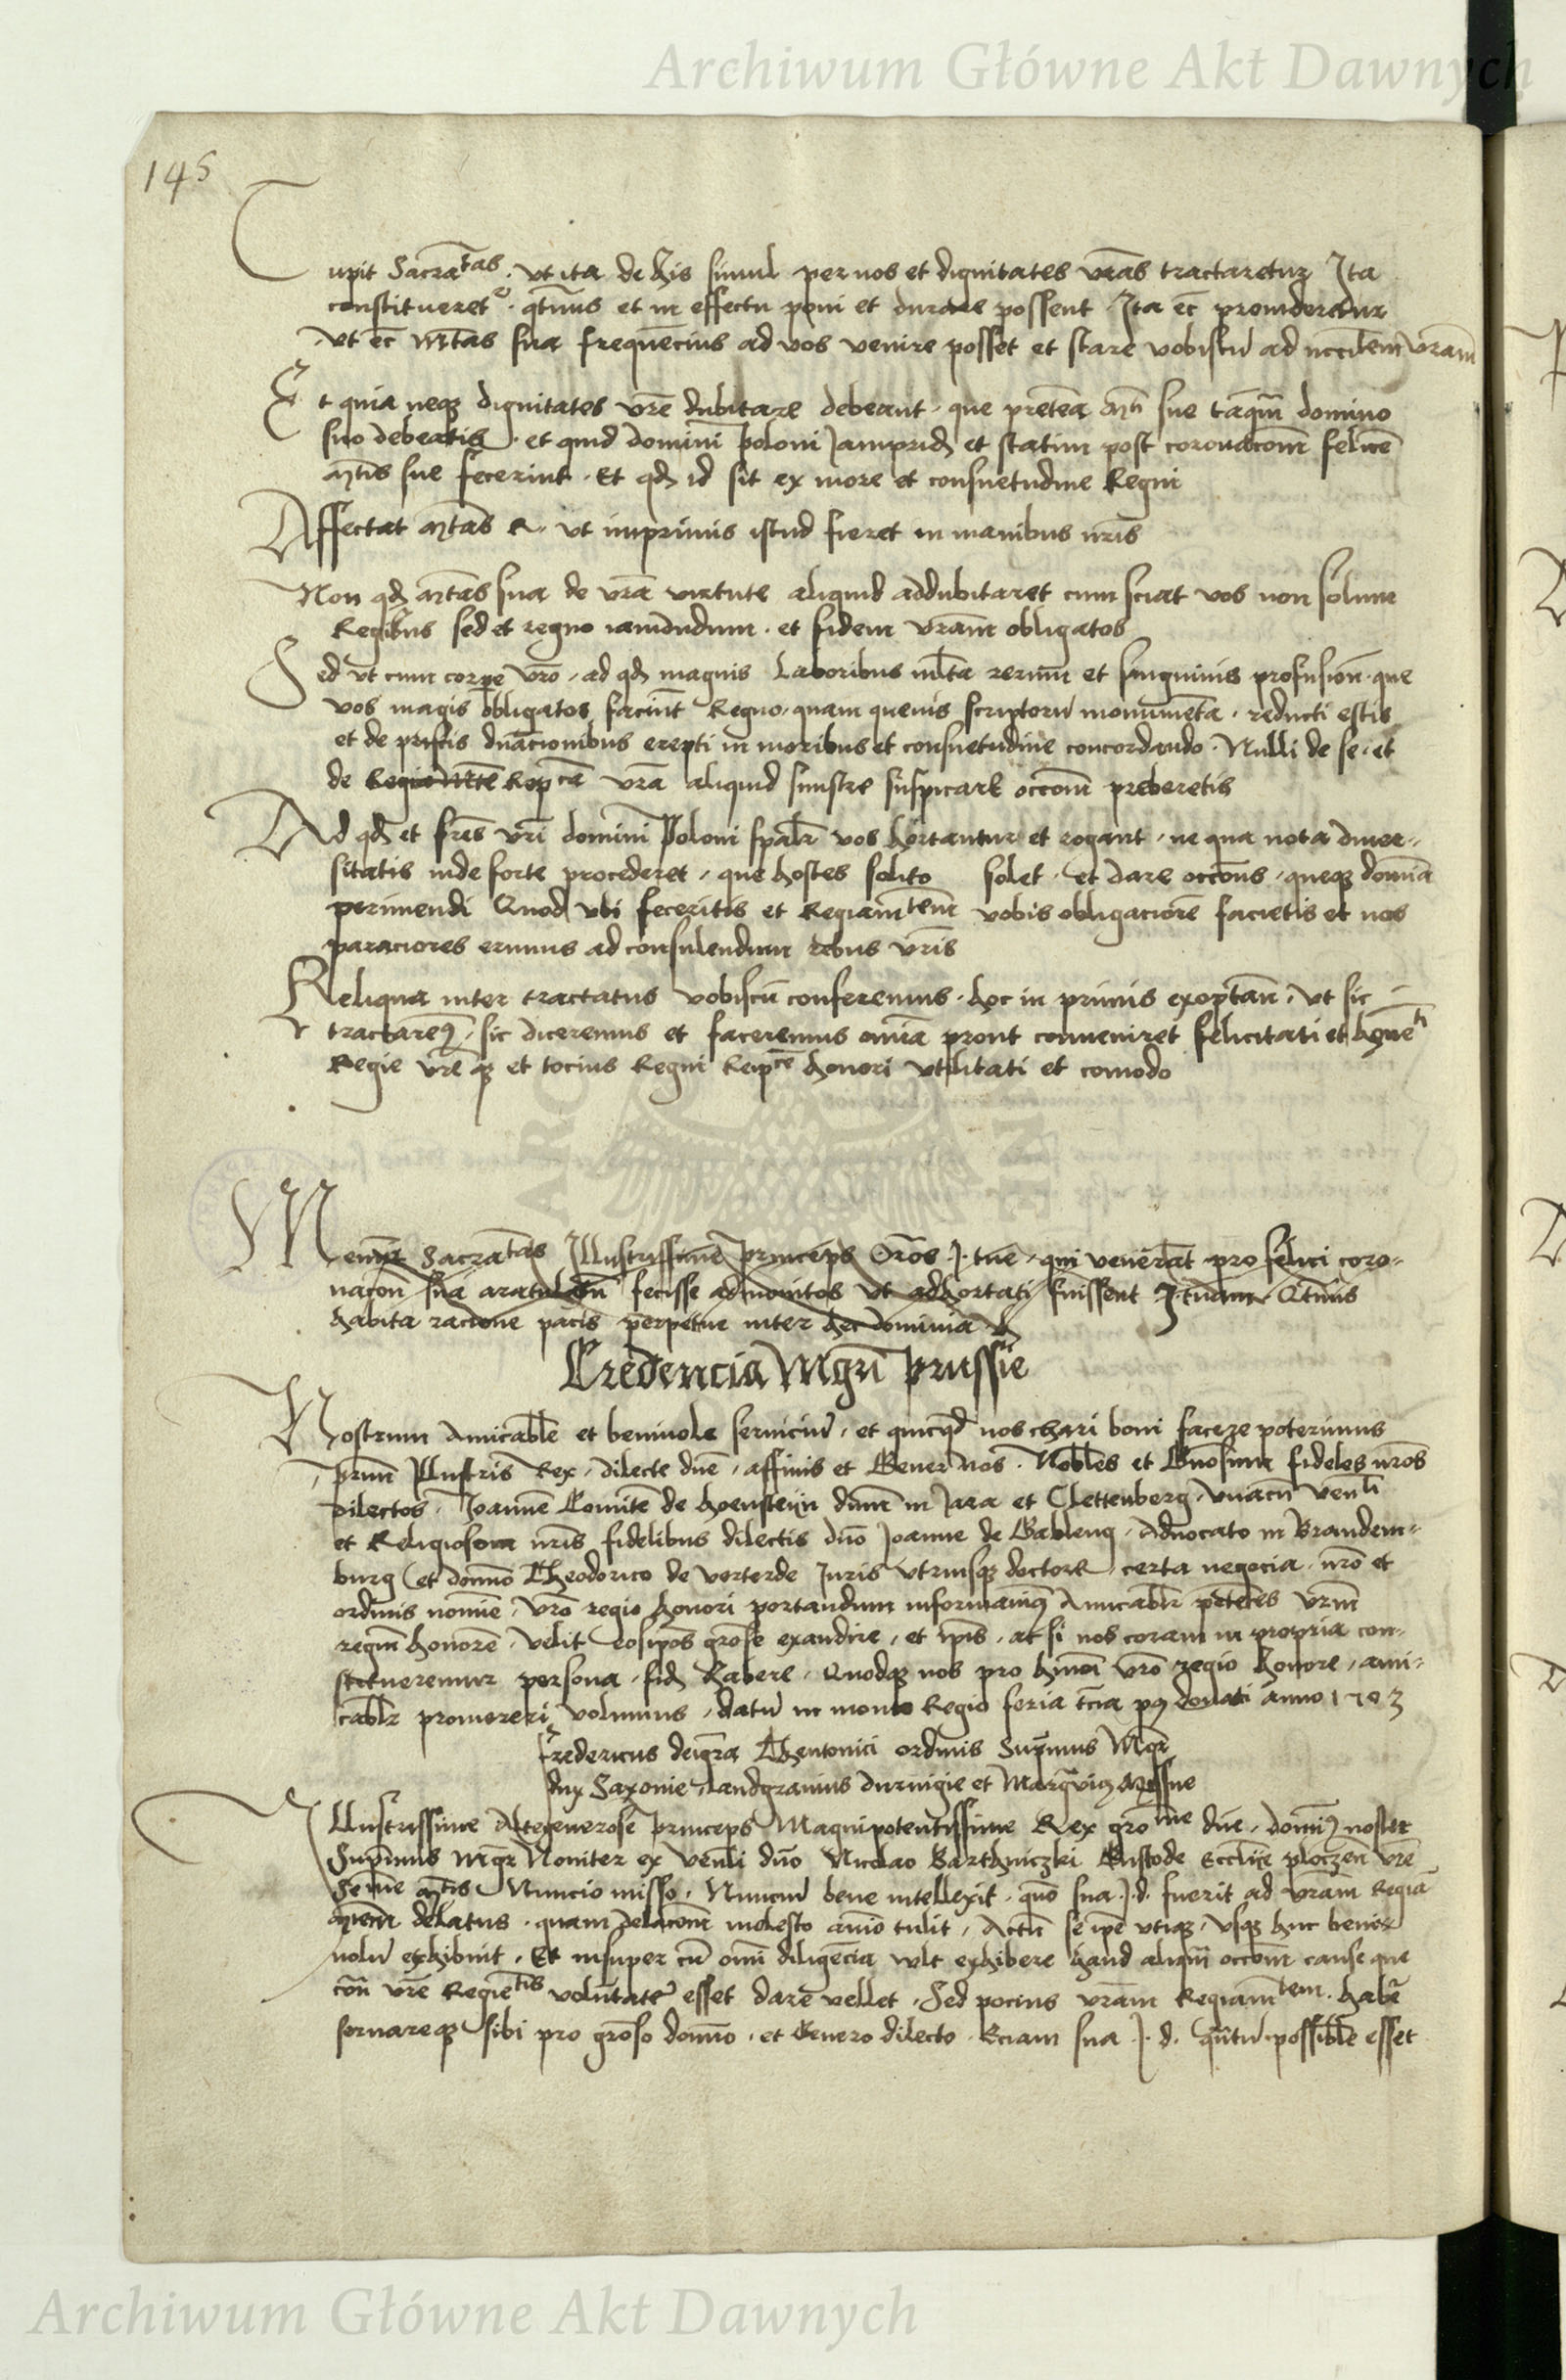 Archiwum Główne Akt Dawnych
145
Cupit Sacratas. ut ita de his simul per nos et dignitates vras tractaretur Ita
constitueret. qtnus et in effectu poni et durare possent. Ita ec provideretur
ut ec mtas sua frequecius ad vos venire posset et stare vobiscu ad nccitem vram
Et quia neq dignitates vre dubitare debeant. que preterea mti sue taqm domino
suo debeatis. et quid domini poloni Jampridem et statim post coronacoem felice
mtis sue fecerint. Et qd id sit ex more et consuetudine Regni
Affectat mtas R. ut imprimis istud fieret in manibus nris
Non qd mtas sua de vra virtute aliquid addubitaret cum sciat vos non solum
Regibus sed et regno iamdudum. et fidem vram obligatos
Sed ut cum corpe vro, ad qd magnis laboribus mlta rerum et sanguinis profusion. que
vos magis obligatos faciunt Regno. quam quevis scriptoru monumeta. reducti estis
et de priscis dnacionibus erepti in moribus et consuetudine concordando. Nulli de se. et
de Regia Mte Repca vra aliquid sinistre suspicari occoem preberetis
Ad qd et fres vri domini Poloni spalr vos hortantur et rogant. ne qua nota diver-
sitatis inde forte procederet, que hostes solito solet. et dare occons. queq domia
perimendi Quod ubi feceritis et Regiam tem vobis obligaciore facietis et nos
paraciores erimus ad consulendum rebus vris
Reliqua inter tractatus vobiscu conferemus. hoc in primis exoptan. ut sic
tractarem. sic diceremus et faceremus omia prout conveniret felicitati et
Regie vre q et tocius Regni Reipce honori utilitati et comodo
Sacratas Illustrissime princeps Orars J. tue, qui venerat pro felici coro-
nacon sua fecisse admonitos ut adhortati fuissent J. tuam Qtnus
habita racione pacis perpetue inter hec dominia
Credencia Mgri prussie
Nostrum Amicable et benivole serviciu, et quicqd nos chari boni facere poterimus
prim Illustris Rex, dilecte dne, affinis et Gener nos. Nobles et Gnosum fideles nros
dilectos. Joanne Comite de hoensteijn dnm in Jara et Clettenberg, unacu venli
et Religiosom nris fidelibus dilectis dno Joanne de Gablenq. Advocato in Brandem-
burg et domno Theodorico de verterde Juris utriusq doctore certa negocia. nro et
ordinis nomie, vro regio honori portandum informavim Amicablr petetes vrm
regium honore. velit eosipos grose exaudire, et ipis, ac si nos coram in propria con-
stitueremur persona, fid habere, Quodq nos pro hmoi vro regio honore, ami-
cablr promereri volumus, datu in monte Regio feria tcia pq donati anno 1503
Fredericus deigra Theutonici ordinis Supmus Mgr
dux Saxonie, landgravius duringie et Marqvioq Myssne
Illustrissime Ategenerose princeps Magnipotentissime Rex gro me dne, domiq noster
Supimus mgr Noviter ex venli dno Nicolao Barthniczki Custode Ecclie ploczen vre
Sermie mtis Nuncio misso, Nunciu bene intellexit. quo sua J. d. fuerit ad vram Regia
mtem delatus. quam delacoem molesto aimo tulit, Actu se ipe utiq, usq huc benivo
volu exhibuit, Et insuper cu omi diligecia vult exhibere haud aliqm occoem cause que
con vre Regie tis volutate esset dare vellet. Sed pocius vram Regiam tem. habe
servareq sibi pro groso domno, et Genero dilecto. Eciam sua J. d. qntu possible esset
Archiwum Główne Akt Dawnych